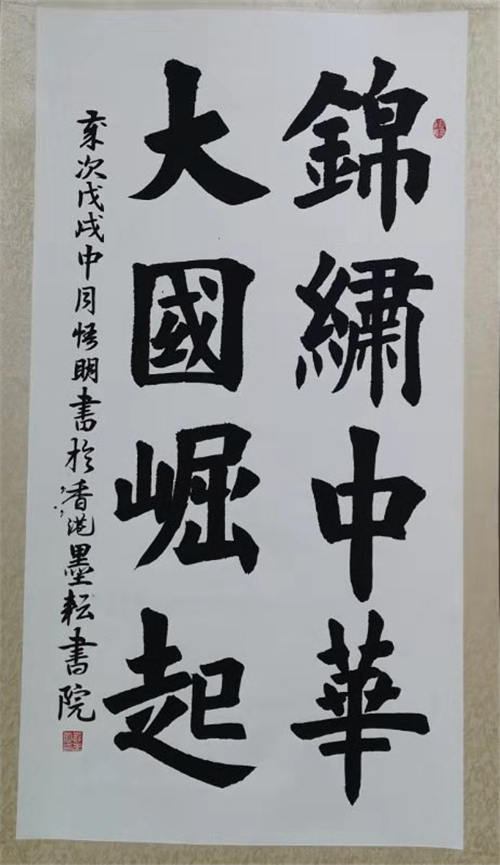 錦繡中華
大國崛起
歲次戊戌中月悟明書於香港墨耘書院